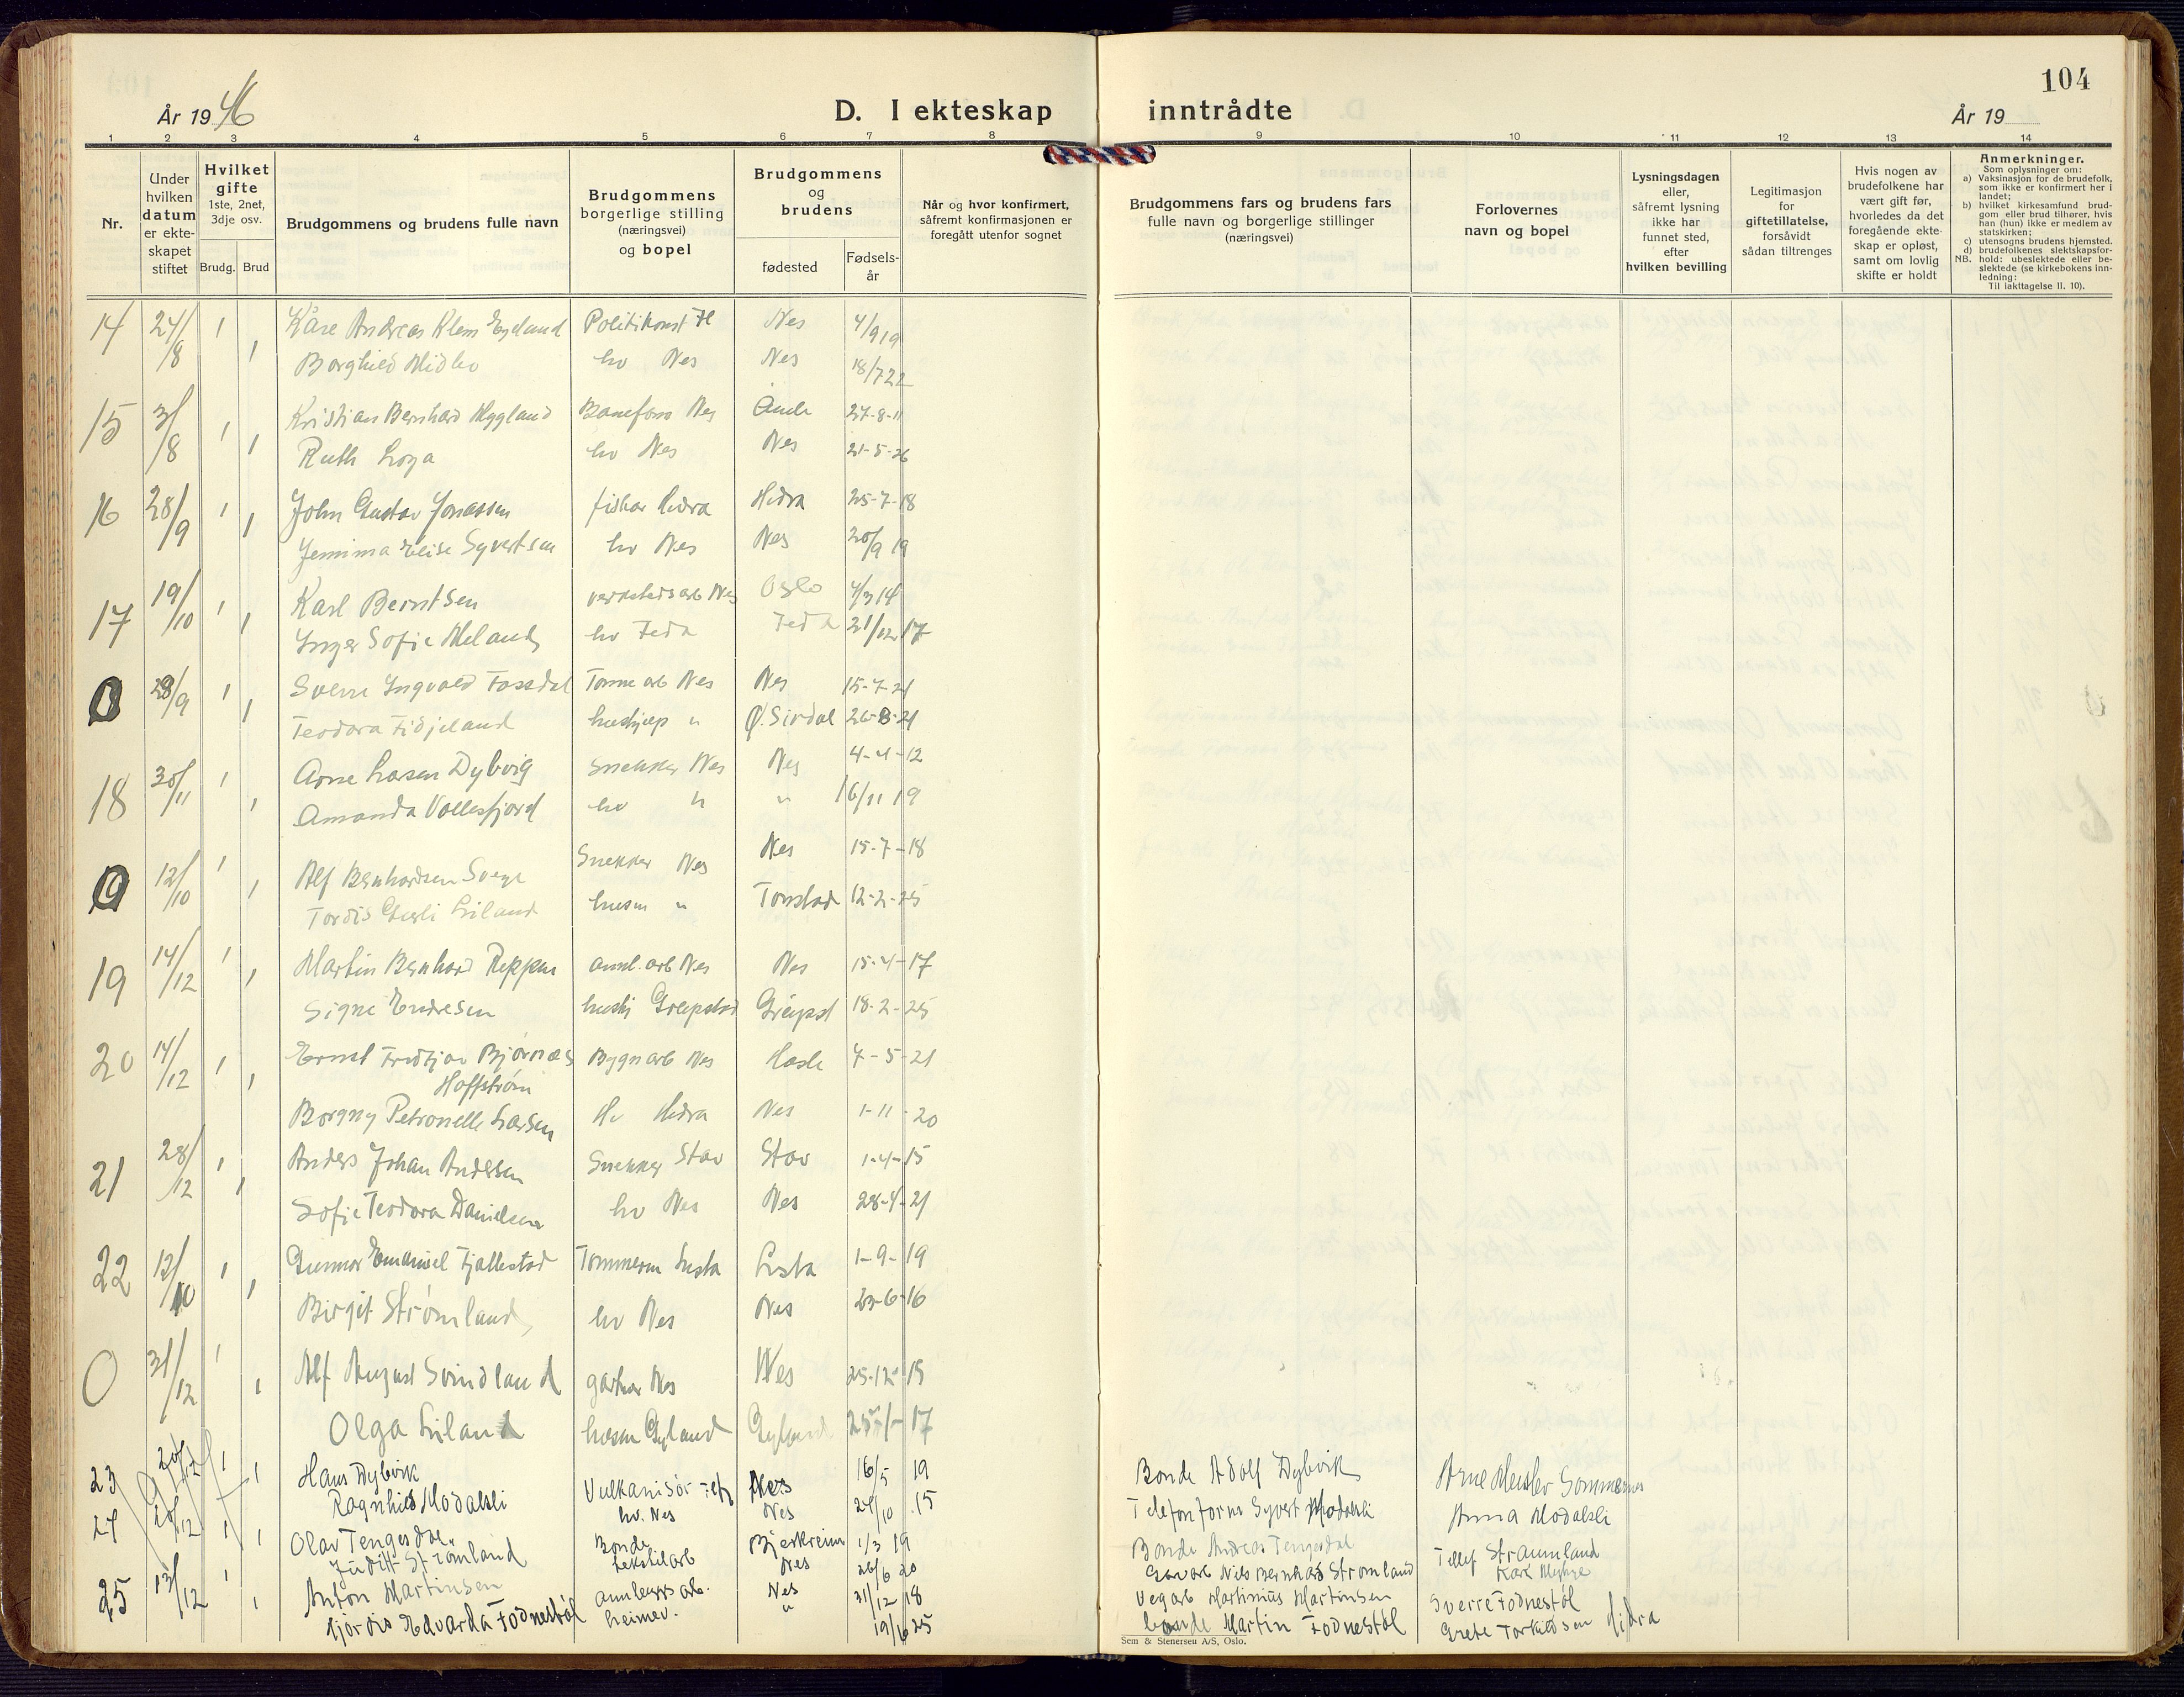 104
År 19 46
D. I ekteskap inntrådte
År 19
1 2 3 4 5 6 7 8 9 10 11 12 13 14
Nr.
Under hvilken datum er ekte-skapet stiftet
Hvilket gifte
1ste, 2net, 3dje osv.
Brudg. Brud
Brudgommens og brudens fulle navn
Brudgommens borgerlige stilling (næringsvei) og bopel
Brudgommens og brudens
fødested
Fødsels-år
Når og hvor konfirmert, såfremt konfirmasjonen er foregått utenfor sognet
Brudgommens fars og brudens fars fulle navn og borgerlige stillinger (næringsvei)
Forlovernes navn og bopel
Lysningsdagen eller, såfremt lysning ikke har funnet sted, efter hvilken bevilling
Legitimasjon for giftetillatelse, forsåvidt sådan tiltrenges
Hvis nogen av brudefolkene har vært gift før, hvorledes da det foregående ekte-skap er opløst, samt om lovlig skifte er holdt
Anmerkninger.
Som oplysninger om:
a) Vaksinasjon for de brudefolk, som ikke er konfirmert her i landet;
b) hvilket kirkesamfund brud-gom eller brud tilhører, hvis han (hun) ikke er medlem av statskirken;
c) utensogns brudens hjemsted.
d) brudefolkenes slektskapsfor-
NB. hold: ubeslektede eller be-slektede (se kirkebokens inn-ledning:
Til iakttagelse II. 10).
14 24/8 1 Kåre Andreas Klem Eyeland Politikonst Nes 4/9 19
1 Borghild Midbo hv Nes Nes 18/7 22
15 31/8 1 Kristian Bernhard Myglund Nes 27-8-11
1 Ruth Loga hv Nes Nes 21-5-26
16 28/9 1 John Gustav Jonassen fisker Hidra Hidra 25-7-18
1 Jemima Elise Syvertsen hv Nes Nes 20/9 19
17 19/10 1 Karl Berntsen verkstedsarb Nes Oslo 4/3 14
1 Inger Sofie Meland hv Feda Feda 21/12 17
0 28/9 1 Sverre Yngvald Fossdal Tønne arb Nes Nes 15-7-21
1 Teodora Fidjeland hushjelp " Ø. Sirdal 26-8-21
18 30/11 1 Arne Larsen Dybvig Snekker Nes Nes 4-4-12
1 Amanda Vollesfjord hv " " 16/11 19
0 12/10 1 Alf Bernhardsen Svege Snekker Nes Nes 15-7-18
1 Tordis Gurli Liland husm " Tonstad 12-2-25
19 14/12 1 Martin Bernhard Reppen anl. arb Nes Nes 15-4-17
1 Signe Endresen hushj Greipstad Greipst 18-2-25
20 14/12 1 Ernst Fridtjov Bjørnæs Bygn arb Nes Hasle 7-5-21
Hoffstrøm
1 Borgny Petronelle Larsen Hv Hidra Nes 1-11-20
21 28/12 1 Anders Johan Andersen Snekker Stav Stav 1-4-15
1 Sofie Teodora Danielsen hv Nes Nes 28-4-21
22 12/10 1 Gunnar Emanuel Fjellestad Tømmerm Lista Lista 1-9-19
1 Birgit Strømland hv Nes Nes 23-6-16
0 31/12 1 Alf August Svindland gartner Nes Nes 25-12-15
1 Olga Liland husm Gyland Gyland 17
23 20/12 1 Hans Dybvik Vulkanisør Nes 16/5 19 Bonde Adolf Dybvik Arne Meisler Sommernes
1 Ragnhild Modalsli hv. Nes Nes 24/10 15 Telefonform Syvert Modalsli Anna Modalsli
24 28/12 1 Olav Tengesdal Bonde Bjerkreim 1/3 19 Bonde Andreas Tengesdal Tellef Straumland
1 Judith Strømland tekstilarb Nes 26/6 20 Garvarb Nils Bernhard Strømland Kari Myhre
25 13/12 1 Anton Martinsen anleggsarb. Nes 31/12 18 Vegarb Martinius Martinsen Sverre Fodnestøl
1 Hjørdis Edvarda Fodnestøl heimev. " 19/6 25 bonde Martin Fodnestøl Grete Torkildsen Hidra
Sem & Stenersen A/S, Oslo.